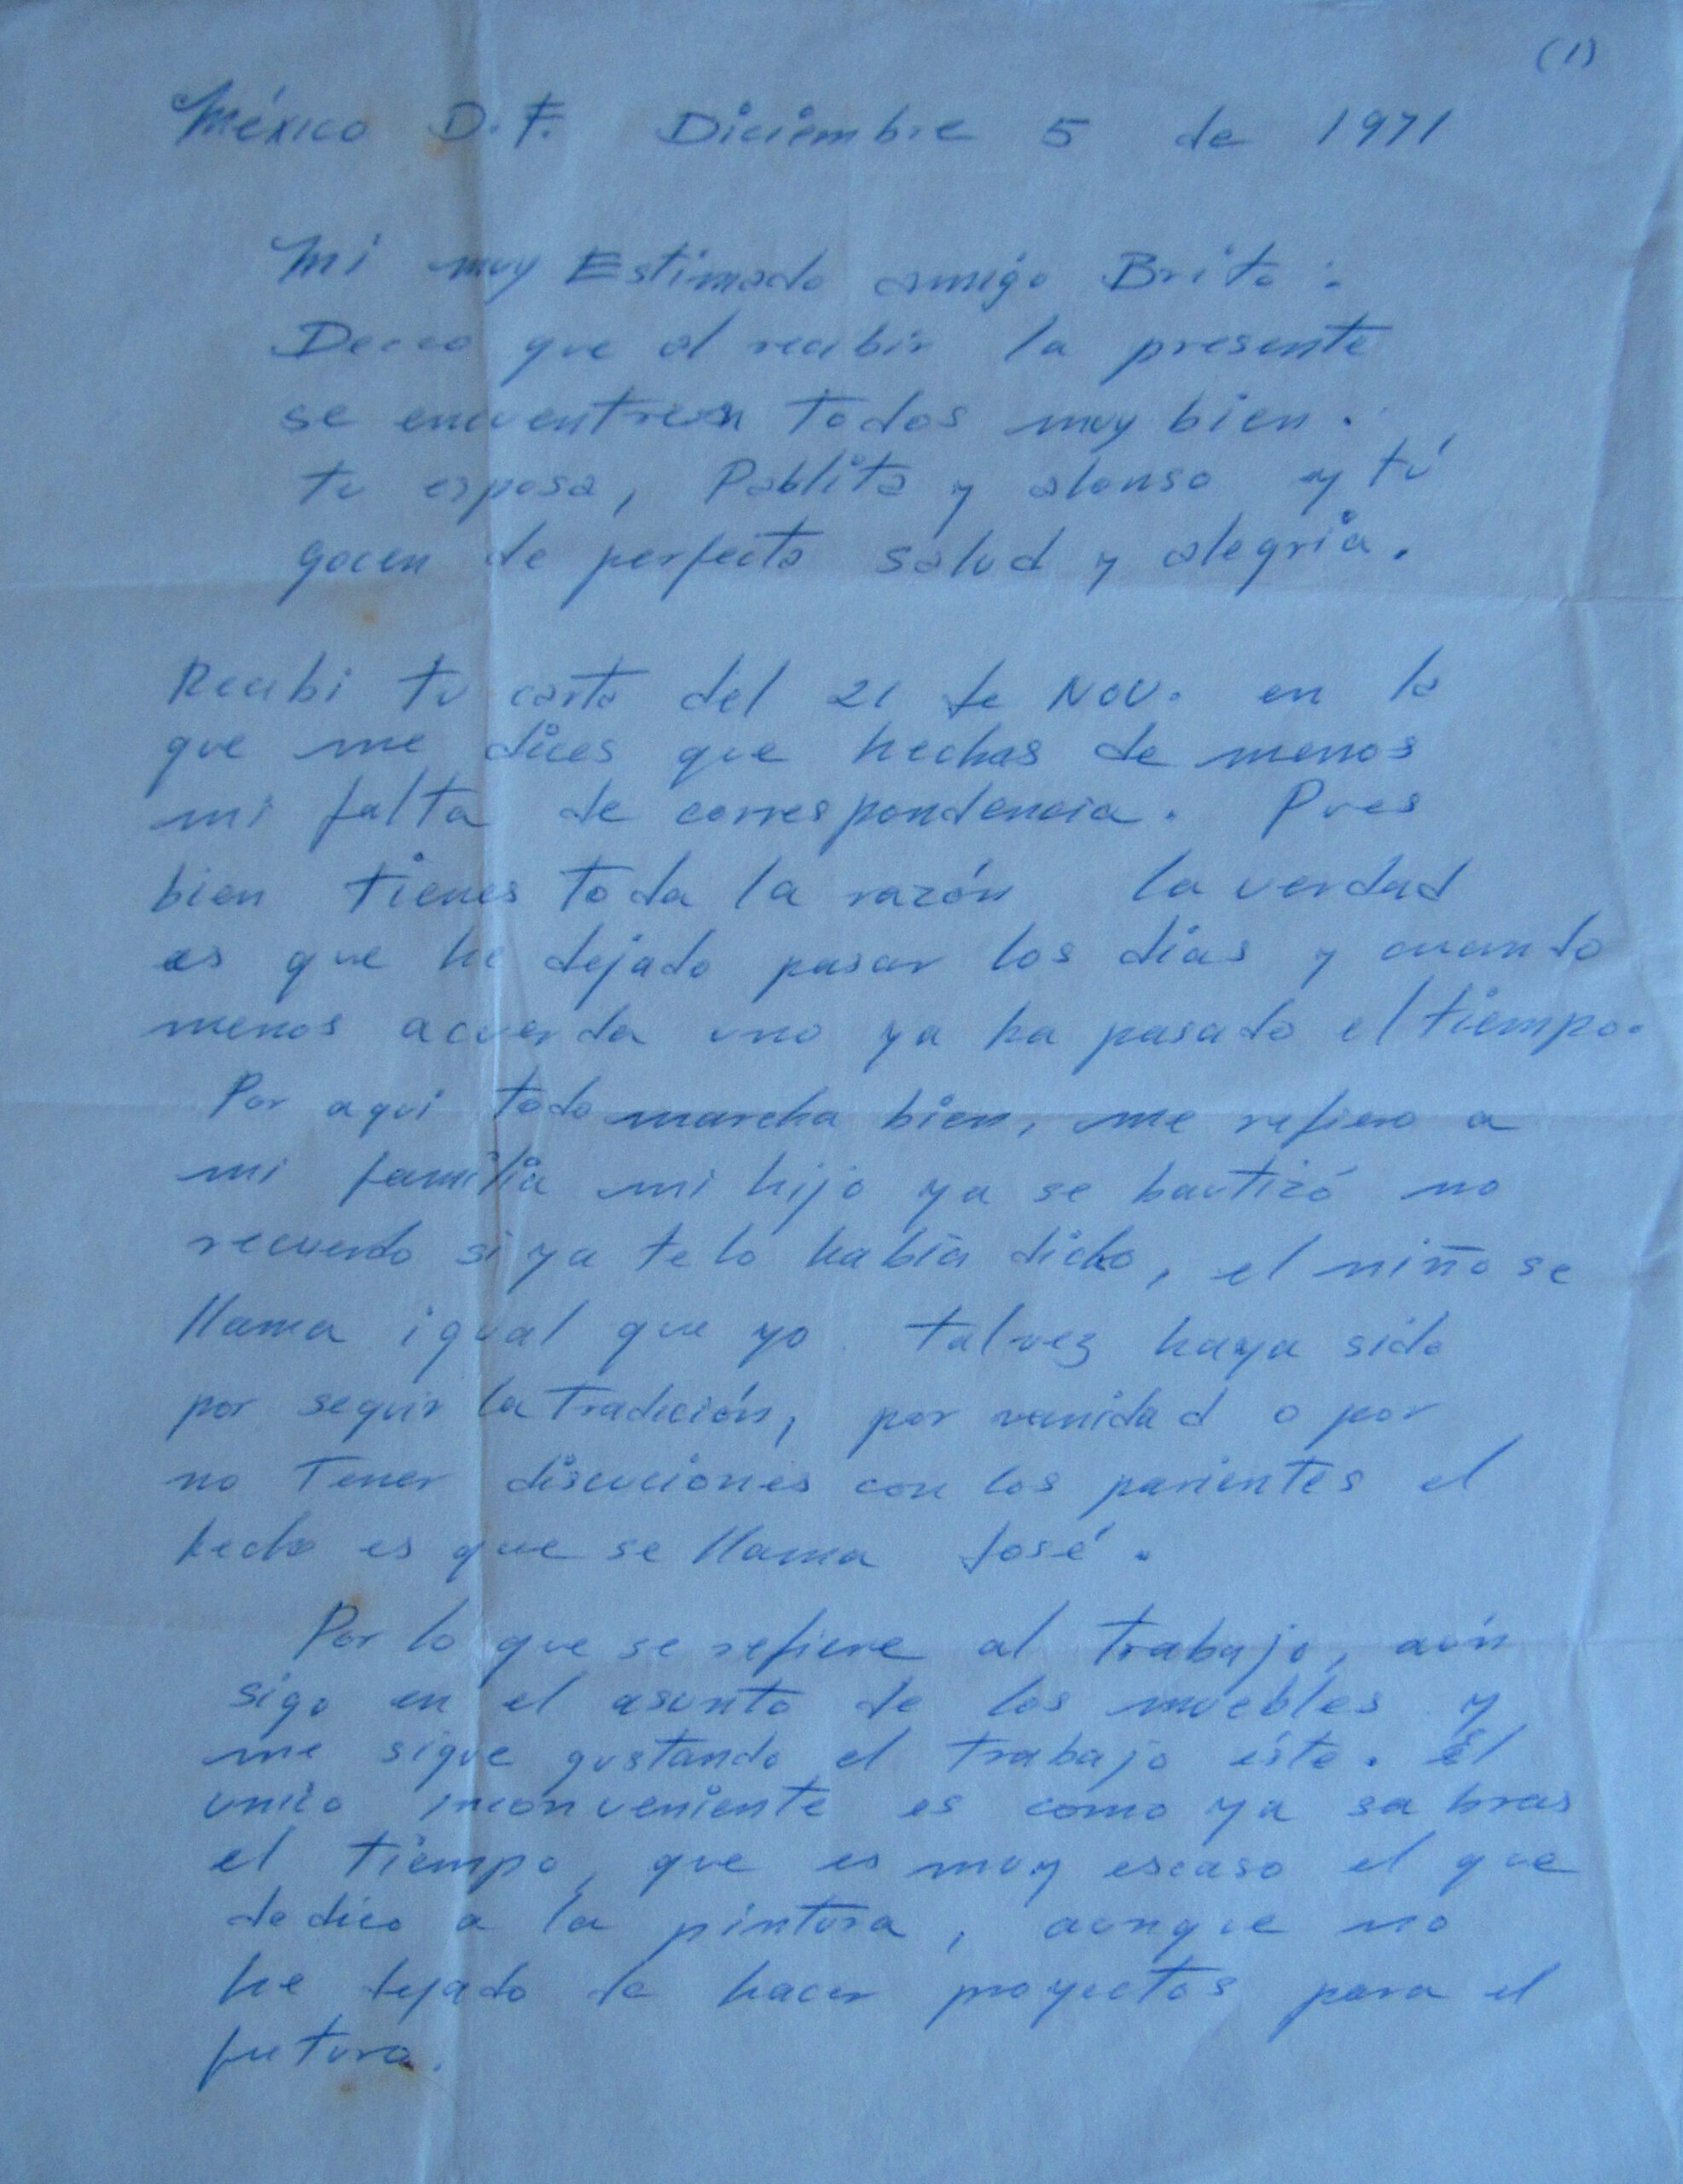 (1)
México D.F. Diciembre 5 de 1971
Mi muy Estimado amigo Brito :
Deceo que al recibir la presente
se encuentren todos muy bien.
tu esposa, Pablito y alonso y tú
gocen de perfecta salud y alegria.
Recibi tu carta del 21 de NOV. en la
que me dices que hechas de menos
mi falta de correspondencia. Pues
bien tienes toda la razón la verdad
es que he dejado pasar los dias y cuando
menos acuerda uno ya ha pasado el tiempo.
Por aqui todo marcha bien, me refiero a
mi familia mi hijo ya se bautizó no
recuerdo si ya te lo habia dicho, el niño se
llama igual que yo talvez haya sido
por seguir la tradición, por vanidad o por
no tener discuciones con los parientes el
hecho es que se llama José.
Por lo que se refiere al trabajo, aún
sigo en el asunto de los muebles y
me sigue gustando el trabajo éste. El
unico inconveniente es como ya sabras
el tiempo, que es muy escaso el que
dedico a la pintura, aunque no
he dejado de hacer proyectos para el
futuro.